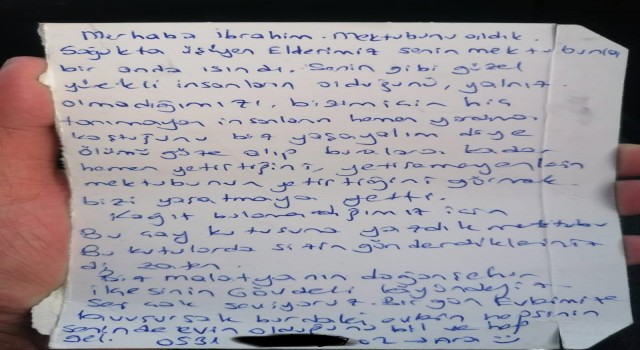 Merhaba ibrahim. Mektubunu aldık.
Soğukta üşüyen Ellerimiz senin mektubunla
bir anda ısındı. Senin gibi güzel
yürekli insanların olduğunu, yalnız
olmadığımızı, bizim için hiç
tanımayan insanların hemen yardıma
koştuğunu biz yaşayalım diye
ölümü göze alıp buralara kadar
hemen yetiştiğini, yetişemeyenlerin
mektubunun yetiştiğini görmek
bizi yaşatmaya yetti.
Kağıt bulamadığımız için
Bu çay kutusuna yazdık mektubu
Bu kutularda sizin gönderdikleriniz
di zaten.
Biz malatyanın doğanşehir
ilçesinin Gövdeli köyündeyiz.
Seni çok seviyoruz. Bir gün Evlerimize
kavuşursak burdaki evlerin hepsinin
seninde evin olduğunu bil ve hep
gel. 0531 02 → Ara